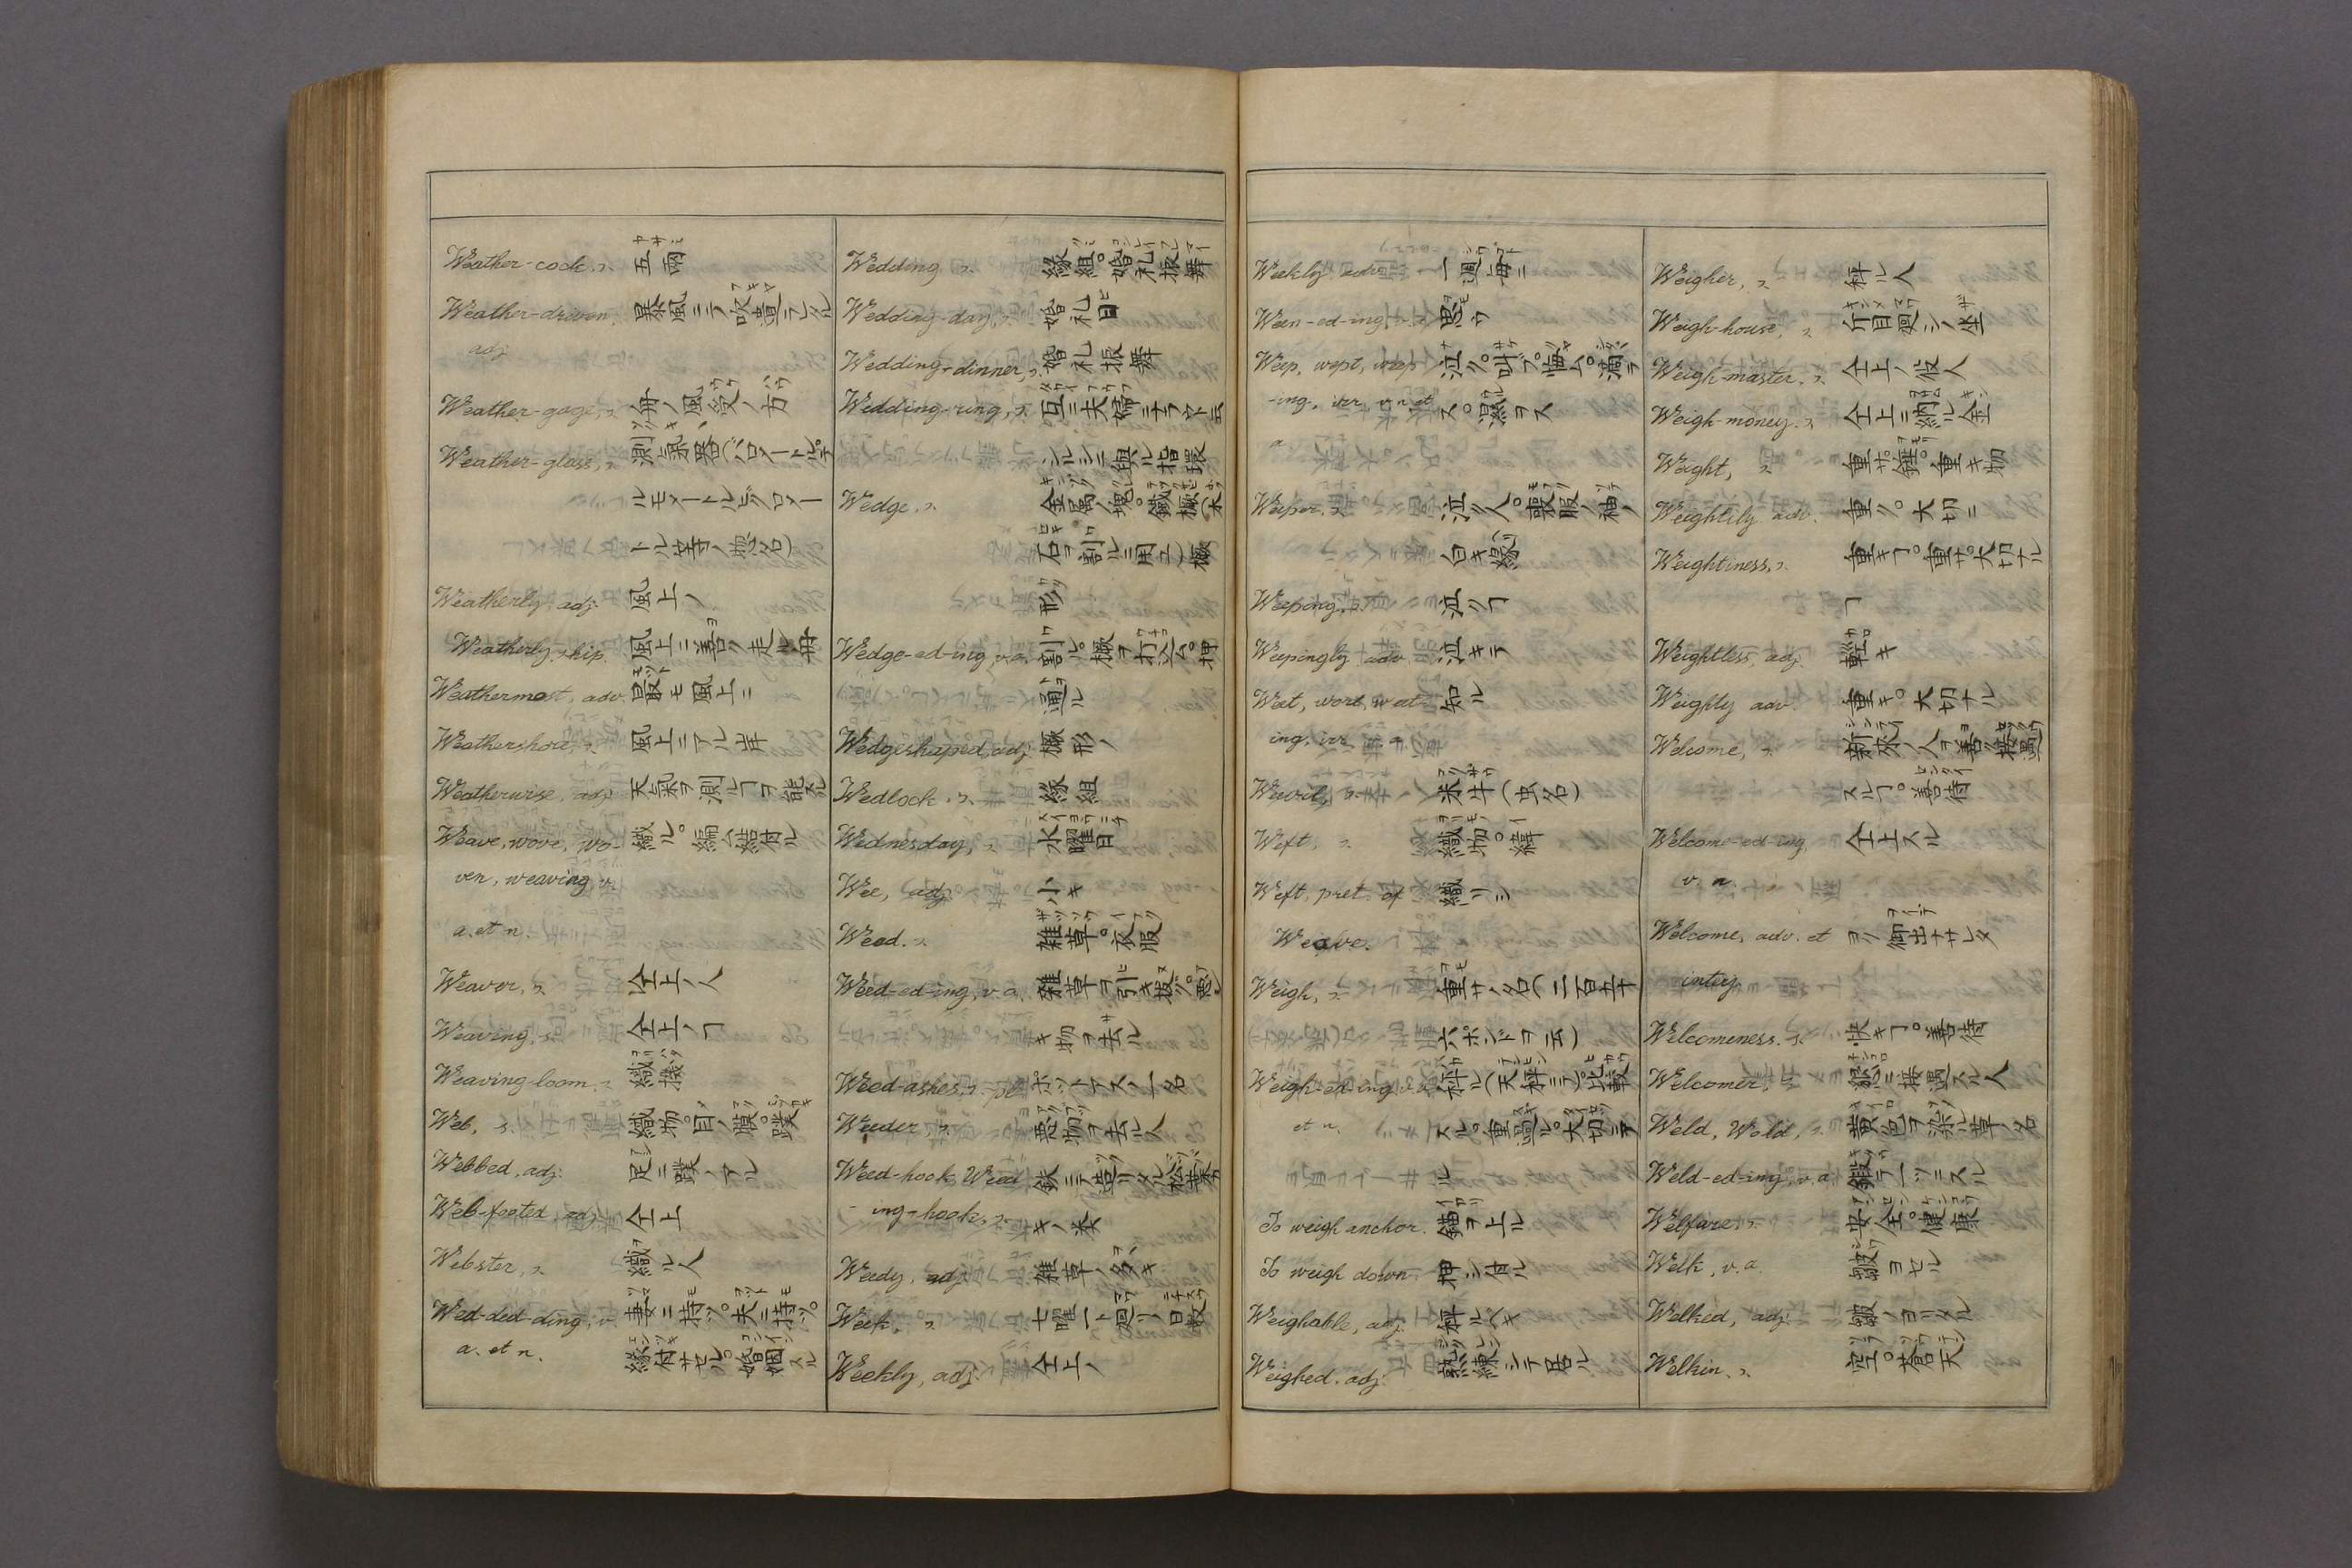 Weather-cock. s. 五兩
Weather-driven. 暴風ニテ吹遣ラレタル
adj
Weather-gage, s. 舟ノ風受ノ方
Weather-glass, s. 測氣器(バロメートルテ
ルモメートルビゲロメー
トル等ノ惣名)
Weatherly, adj. 風上ノ
Weatherly ship. 風上ニ善ク走ル舟
Weathermost, adv. 最モ風上ニ
Weathershore, s. 風上ニアル岸
Weatherwise, adj. 天氣ヲ測ルヿヲ能スル
Weave, wove, wo- 織ル。編ム。結付ル
ven, weaving v.
a. et n.
Weaver, s. 仝上ノ人
Weaving, s. 仝上ノヿ
Weaving-loom. s. 織機
Web, s. 織物。目ノ膜。蹼
Webbed, adj. 足ニ蹼ノアル
Web-footed, adj. 仝上
Webster, s. 織ル人
Wed-ded-ding, v. 妻ニ持ツ。夫ニ持ツ。
a. et n. 緣付セル。婚姻スル
Wedding s. 緣組。婚礼振舞
Wedding-day, s. 婚礼日
Wedding-dinner, s. 婚礼振舞
Wedding-ring, s. 互ニ夫婦ニナラント云
シルシニ與ル指環
Wedge. s. 金属ノ塊。鐵橛(木
石ヲ割ルニ用ユ)橛
形
Wedge-ed-ing, v.a. 割ル。橛ヲ打込ム。押
通ル
Wedgeshaped, adj. 橛形ノ
Wedlock. s. 緣組
Wednesday, s. 水曜日
Wee, adj. 小キ
Weed. s. 雑草。衣服
Weed-ed-ing, v.a. 雑草ヲ引キ拔ク。悪シ
キ物ヲ去ル
Weed-ashes, s. pl. ポットアスノ一名
Weeder s. 悪物ヲ去ル人
Weed-hook, Weed 鉄ニテ造リタル
-ing-hook, s.
Weedy, adj. 雑草ノ多キ
Week, s. 七曜一ト廻リノ日数
Weekly, adj. 仝上ノ
Weekly adv. 一週毎ニ
Ween-ed-ing, 思ウ
Weep, wept, weep 泣ク。叫ブ。悔ム。滴ラ
-ing, irr. v. n. et ス。濕ヲス
a
Weeper, s. 泣ク人。喪服ノ袖ノ
白キ緣
Weeping, s. 泣クヿ
Weepingly adv 泣キテ
Weet, wore, weet- 知ル
ing, irr.
Weevil, s. 米牛(虫名)
Weft, s. 織物。緯
Weft, pret. of 織リシ
Weave.
Weigh, s. 重サノ名(二百五十
六ポンドヲ云)
Weigh-ed-ing v. a. 秤ル(天秤ニテ)比較
et n. スル。重過ル。大切ニテ
ル
To weigh anchor. 錨ヲ上ル
To weigh down. 押シ付ル
Weighable, adj. 秤ルベキ
Weighed. adj. 熟練シテ居ル
Weigher, s. 秤ル人
Weigh-house, s. 斤目廻シノ坐
Weigh-master. s. 仝上ノ役人
Weigh-money. s. 仝上ニ納ル金
Weight, s. 重サ。錘。重キ物
Weightily adv. 重ク。大切ニ
Weightiness, s. 重キヿ。重サ。大切ナル
ヿ
Weightless, adj. 軽キ
Weighty adv. 重キ。大切ナル
Welcome, s. 新來ノ人ヲ善ク接遇
スルヿ。善待
Welcome-ed-ing, 仝上スル
v. a.
Welcome, adv. et ヨク御出ナサレタ
interj.
Welcomeness. s. 快キヿ。善待
Welcomer, s. 懇ニ接遇スル人
Weld, Wold, s. 黄色ヲ染ル草ノ名
Weld-ed-ing, v.a. 鍛テ一ツニスル
Welfare, s. 安全。健康
Welk, v.a. 皺ヨセル
Welked, adj. 皺ノヨリタル
Welkin. s. 空。蒼天